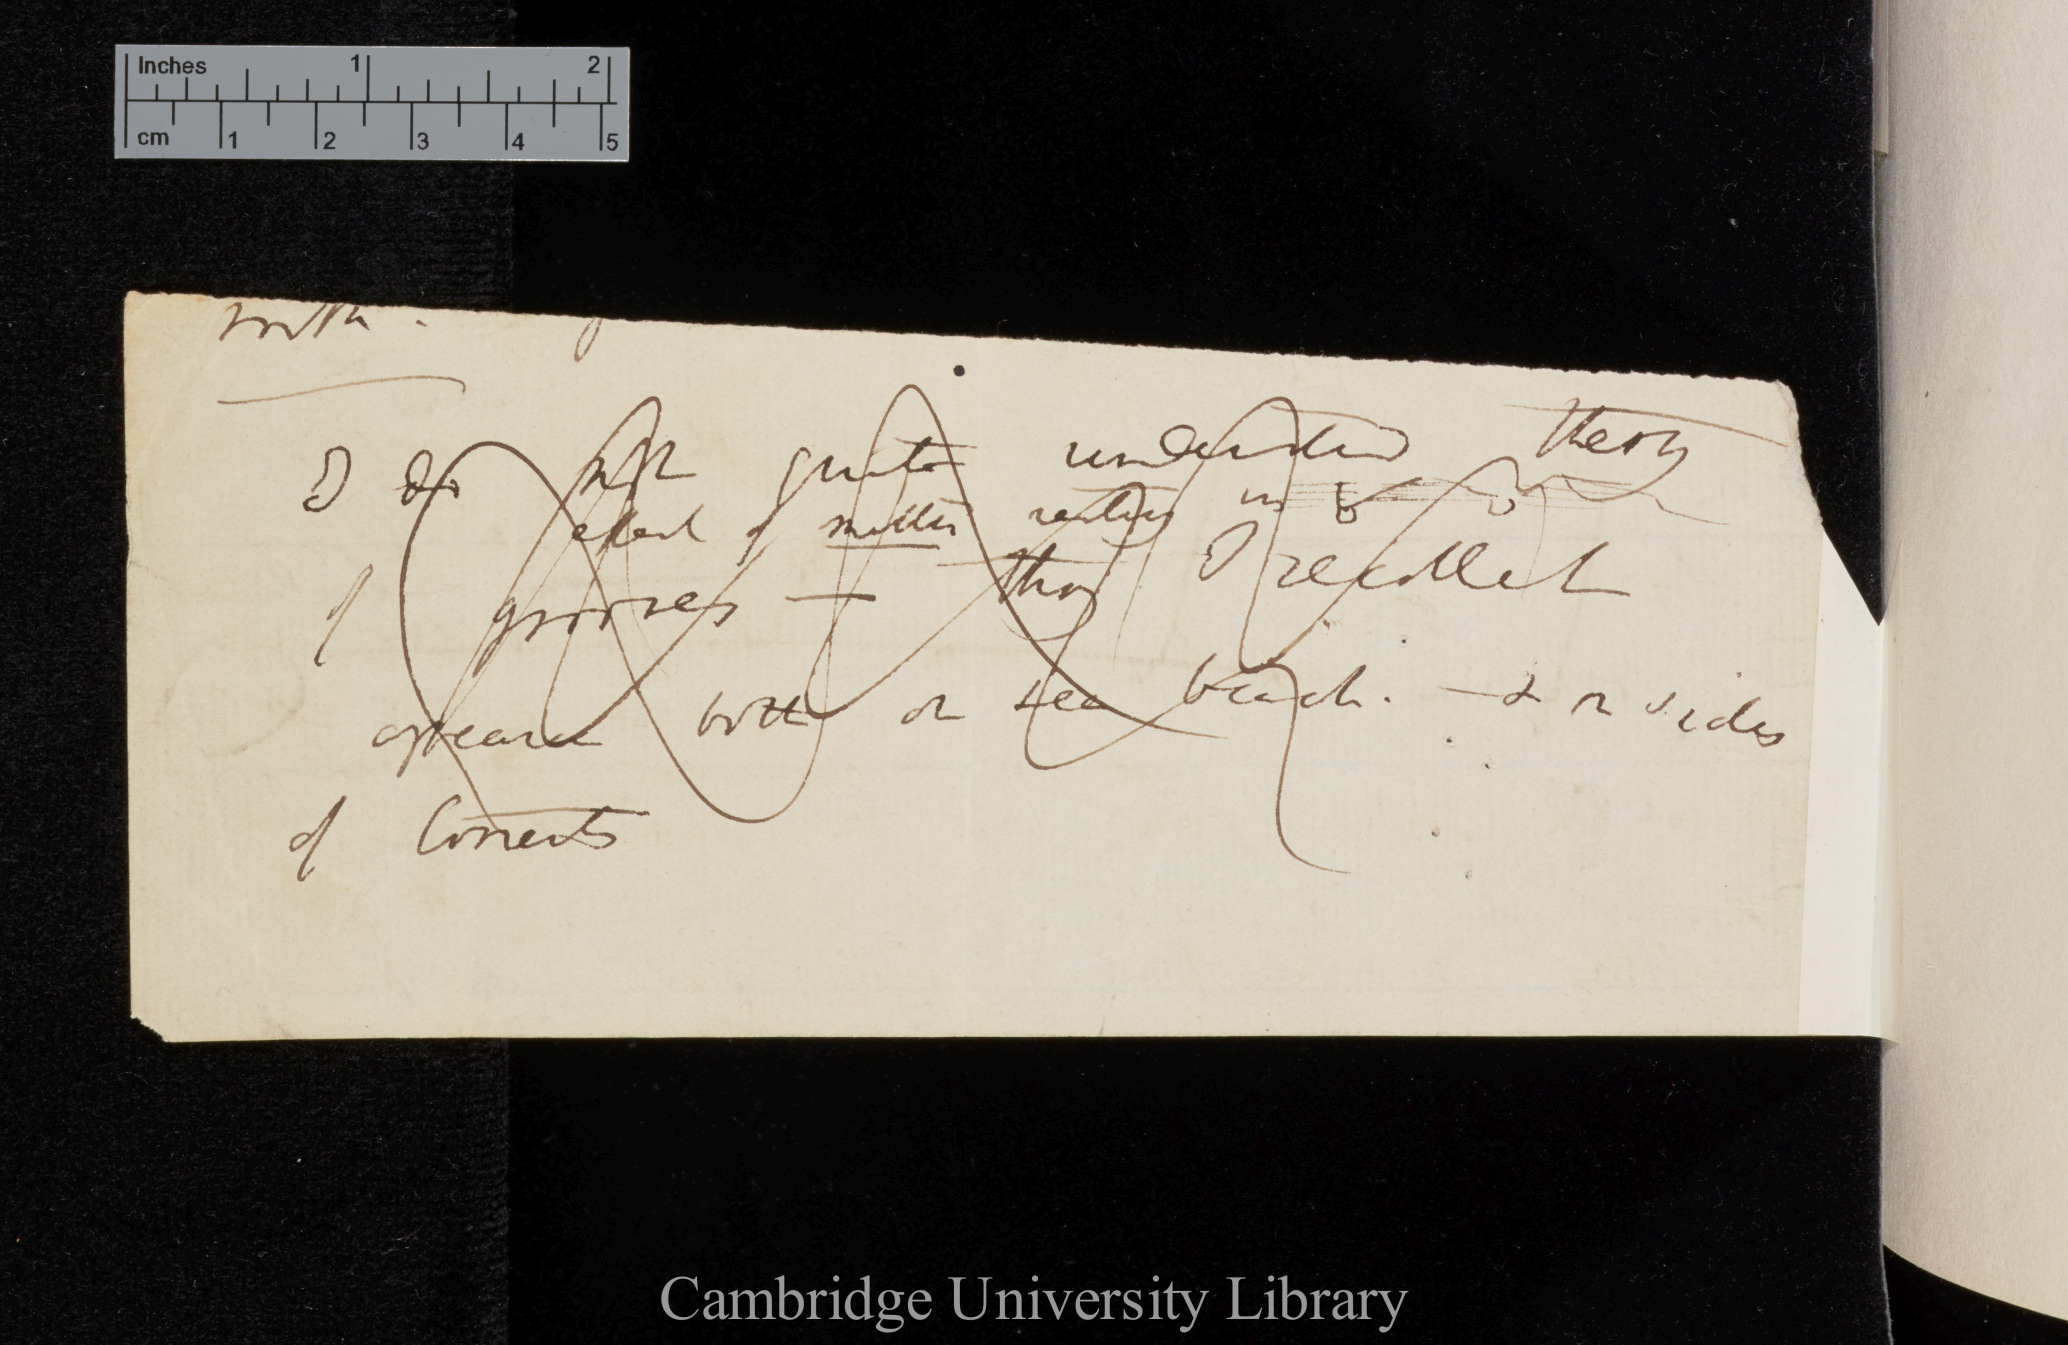 Inches 1 2
cm 1 2 3 4 5
I do not quite understand theory
effect of matter resting in
of grooves — they I recollect
appeared both on sea beach. — & on sides
of Torrents
Cambridge University Library